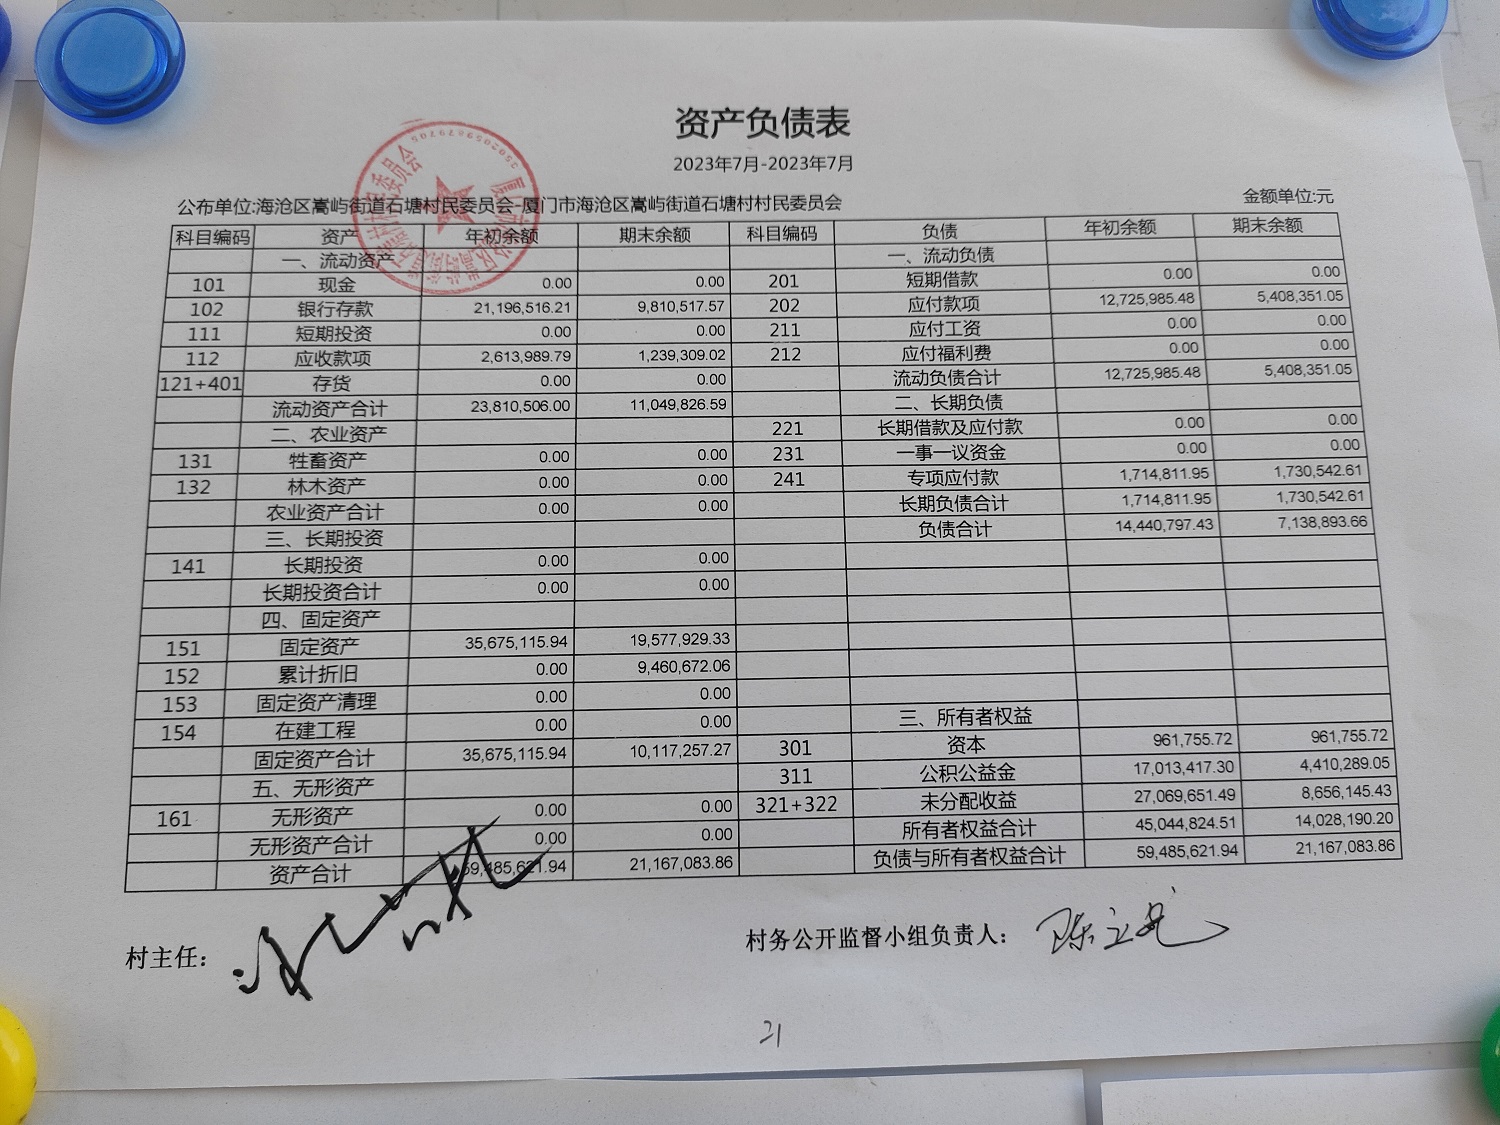 资产负债表
2023年7月-2023年7月
公布单位:海沧区嵩屿街道石塘村民委员会-厦门市海沧区嵩屿街道石塘村村民委员会 金额单位:元
科目编码 资产 年初余额 期末余额 科目编码 负债 年初余额 期末余额
一、流动资产 一、流动负债
101 现金 0.00 0.00 201 短期借款 0.00 0.00
102 银行存款 21,196,516.21 9,810,517.57 202 应付款项 12,725,985.48 5,408,351.05
111 短期投资 0.00 0.00 211 应付工资 0.00 0.00
112 应收款项 2,613,989.79 1,239,309.02 212 应付福利费 0.00 0.00
121+401 存货 0.00 0.00 流动负债合计 12,725,985.48 5,408,351.05
流动资产合计 23,810,506.00 11,049,826.59 二、长期负债
二、农业资产 221 长期借款及应付款 0.00 0.00
131 牲畜资产 0.00 0.00 231 一事一议资金 0.00 0.00
132 林木资产 0.00 0.00 241 专项应付款 1,714,811.95 1,730,542.61
农业资产合计 0.00 0.00 长期负债合计 1,714,811.95 1,730,542.61
三、长期投资 负债合计 14,440,797.43 7,138,893.66
141 长期投资 0.00 0.00
长期投资合计 0.00 0.00
四、固定资产
151 固定资产 35,675,115.94 19,577,929.33
152 累计折旧 0.00 9,460,672.06
153 固定资产清理 0.00 0.00
154 在建工程 0.00 0.00 三、所有者权益
固定资产合计 35,675,115.94 10,117,257.27 301 资本 961,755.72 961,755.72
五、无形资产 311 公积公益金 17,013,417.30 4,410,289.05
161 无形资产 0.00 0.00 321+322 未分配收益 27,069,651.49 8,656,145.43
无形资产合计 0.00 0.00 所有者权益合计 45,044,824.51 14,028,190.20
资产合计 59,485,621.94 21,167,083.86 负债与所有者权益合计 59,485,621.94 21,167,083.86
村主任: 村务公开监督小组负责人:
21